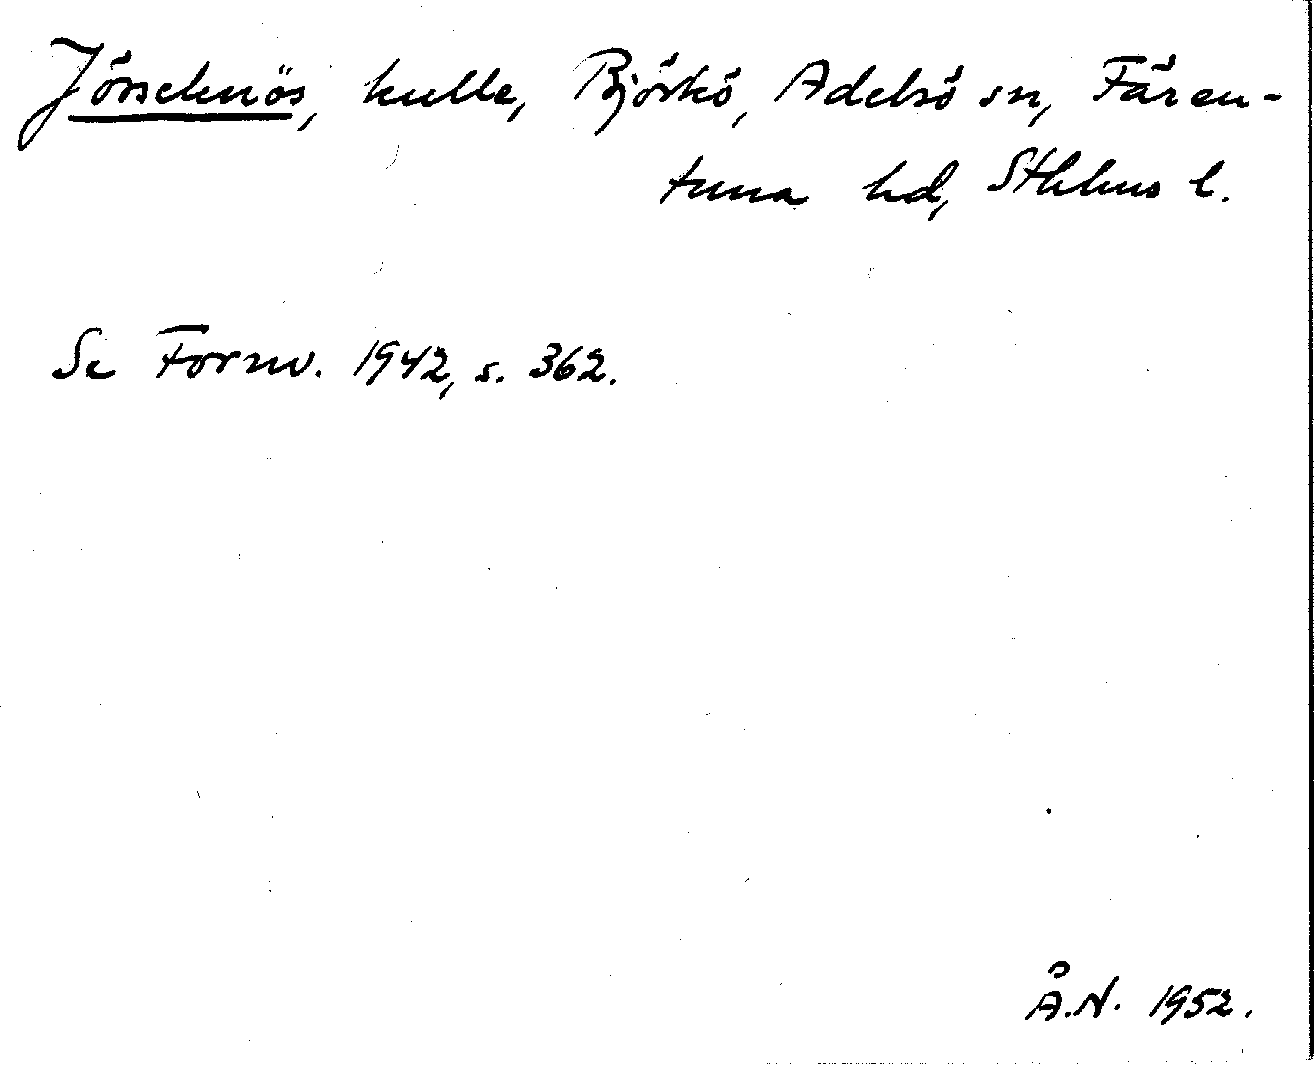 Jörseknös, kulle, Björkö, Adelsö sn, Fären-
tuna hd, Sthlms l.
Se Fornv. 1942, s. 362.
Å.N. 1952.